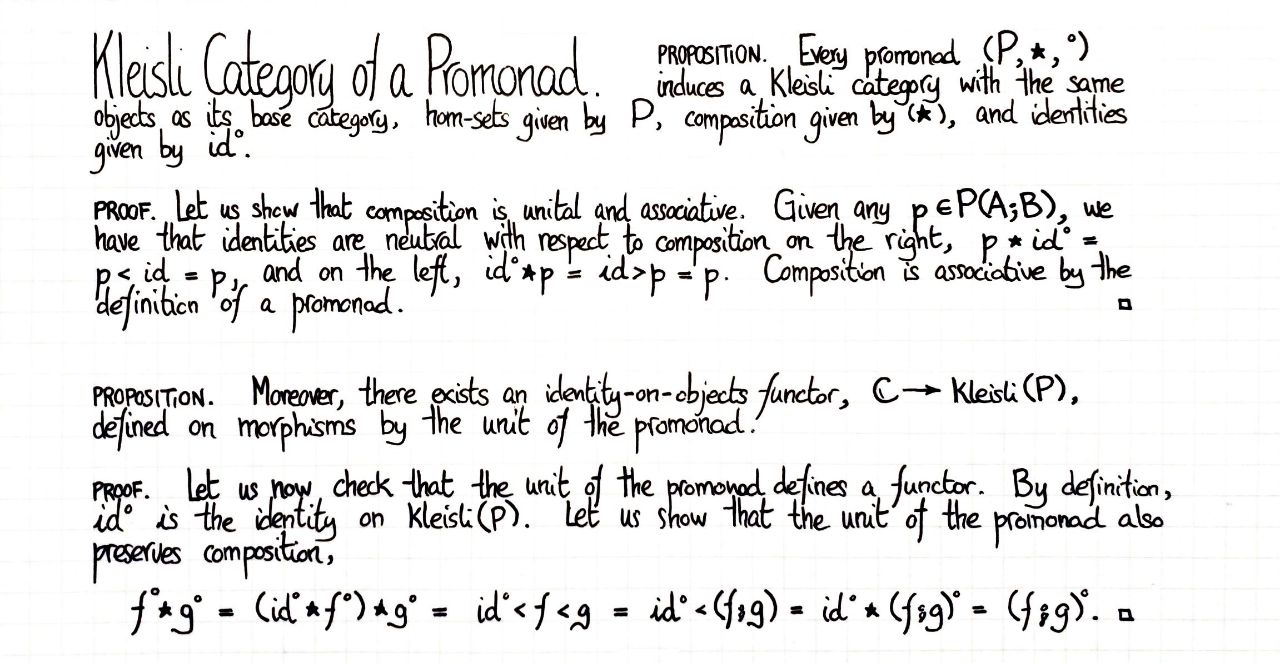 Kleisli Category of a Promonad. PROPOSITION. Every promonad (P,⋆,°)
induces a Kleisli category with the same
objects as its base category, hom-sets given by P, composition given by (⋆), and identities
given by id°.
PROOF. Let us show that composition is unital and associative. Given any p∈P(A;B), we
have that identities are neutral with respect to composition on the right, p ⋆ id° =
p < id = p, and on the left, id°⋆p = id>p = p. Composition is associative by the
definition of a promonad. □
PROPOSITION. Moreover, there exists an identity-on-objects functor, ℂ → Kleisli(P),
defined on morphisms by the unit of the promonad.
PROOF. Let us now check that the unit of the promonad defines a functor. By definition,
id° is the identity on Kleisli(P). Let us show that the unit of the promonad also
preserves composition,
f°⋆g° = (id°⋆f°)⋆g° = id°<f<g = id°<(f⨟g) = id°⋆(f⨟g)° = (f⨟g)°. □